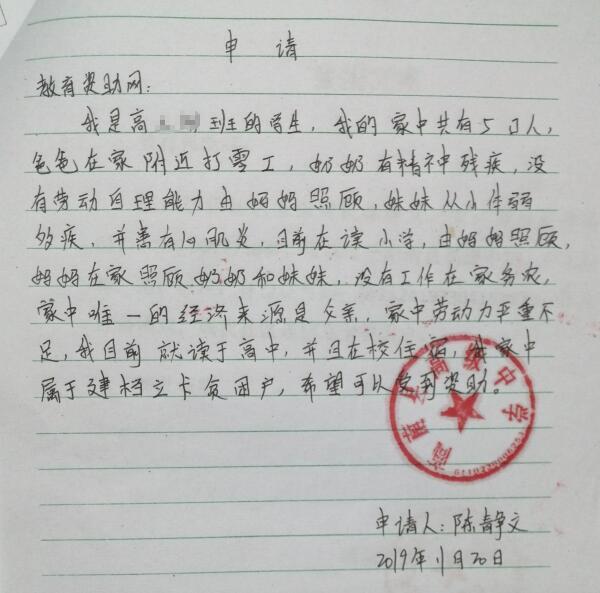 申 请
教育资助网:
我是高 班的学生,我的家中共有5口人,
爸爸在家附近打零工,奶奶有精神残疾,没
有劳动自理能力由妈妈照顾,妹妹从小体弱
多疾,并患有心肌炎,目前在读小学,由妈妈照顾,
妈妈在家照顾奶奶和妹妹,没有工作在家务农,
家中唯一的经济来源是父亲,家中劳动力严重不
足,我目前就读于高中,并且在校住宿,我家中
属于建档立卡贫困户,希望可以受到资助。
高级中学
申请人:陈静文
2019年11月20日